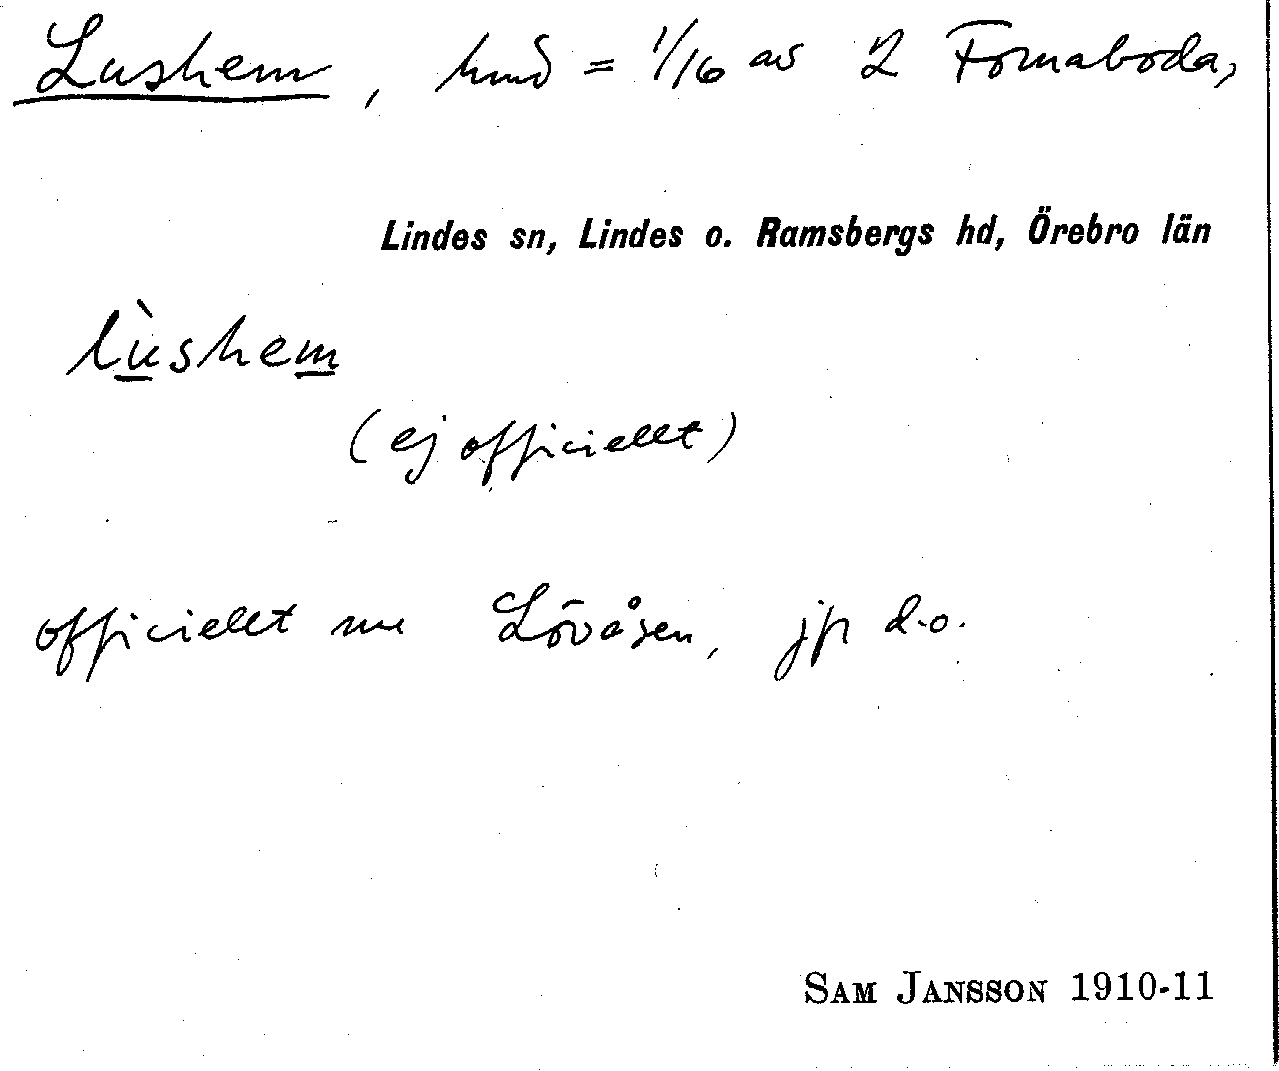 Lushem, hmd = 1/16 av 2 Fornaboda,
Lindes sn, Lindes o. Ramsbergs hd, Örebro län
lùshem
(ej officiellt)
officiellt nu Lövåsen, jfr d.o.
SAM JANSSON 1910-11